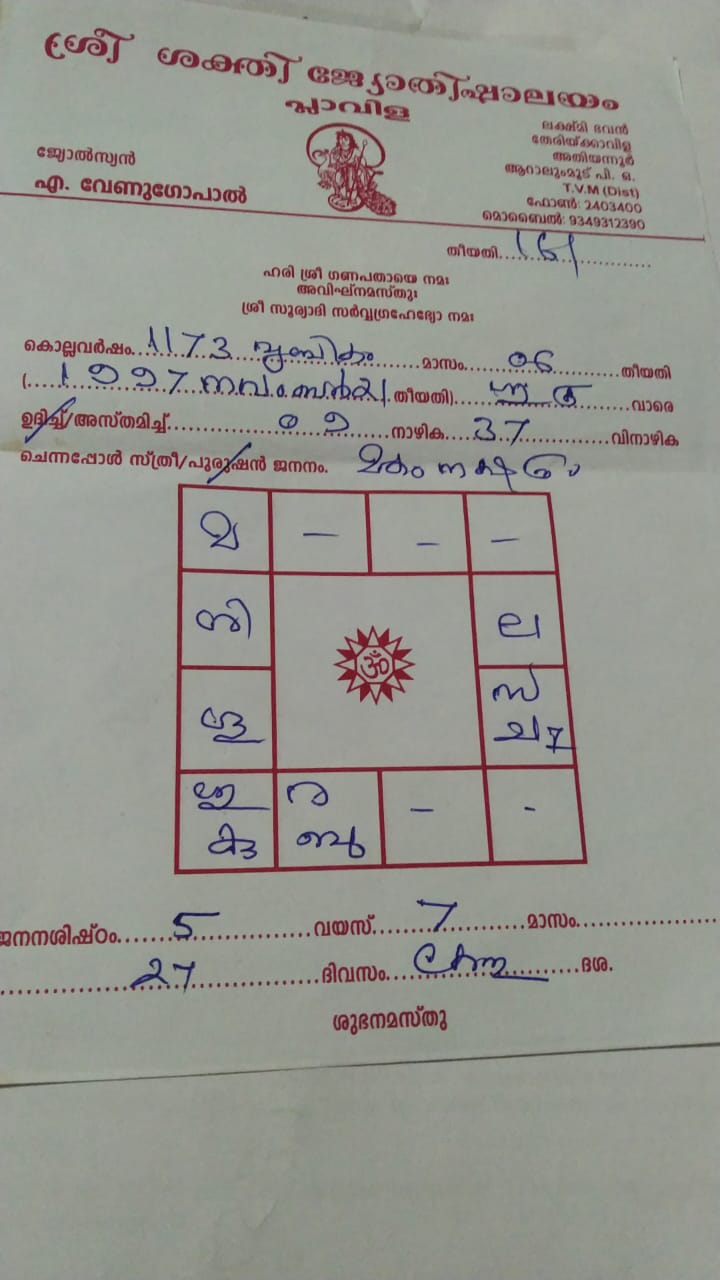 ശ്രീ ശക്തി ജ്യോതിഷാലയം
പ്ലാവിള
ജ്യോൽസ്യൻ
എ. വേണുഗോപാൽ
ലക്ഷ്മി ഭവൻ
തേരിയ്ക്കാവിള
അതിയന്നൂർ
ആറാലുംമൂട് പി. ഒ.
T.V.M (Dist)
ഫോൺ: 2403400
മൊബൈൽ: 9349312390
തീയതി
ഹരി ശ്രീ ഗണപതായെ നമഃ
അവിഘ്നമസ്തുഃ
ശ്രീ സൂര്യാദി സർവ്വഗ്രഹേദ്യോ നമഃ
കൊല്ലവർഷം 1173 വൃശ്ചികം മാസം 06 തീയതി
(1997 നവംബർ തീയതി) വാരെ
ഉദിച്ച്/അസ്തമിച്ച് 09 നാഴിക 37 വിനാഴിക
ചെന്നപ്പോൾ സ്ത്രീ/പുരുഷൻ ജനനം. മകം നക്ഷത്രം
– – –
ശി ല
ഗു
ര
കു ബു – -
ॐ
ജനനശിഷ്ഠം 5 വയസ് 7 മാസം
27 ദിവസം ദശ.
ശുഭനമസ്തു